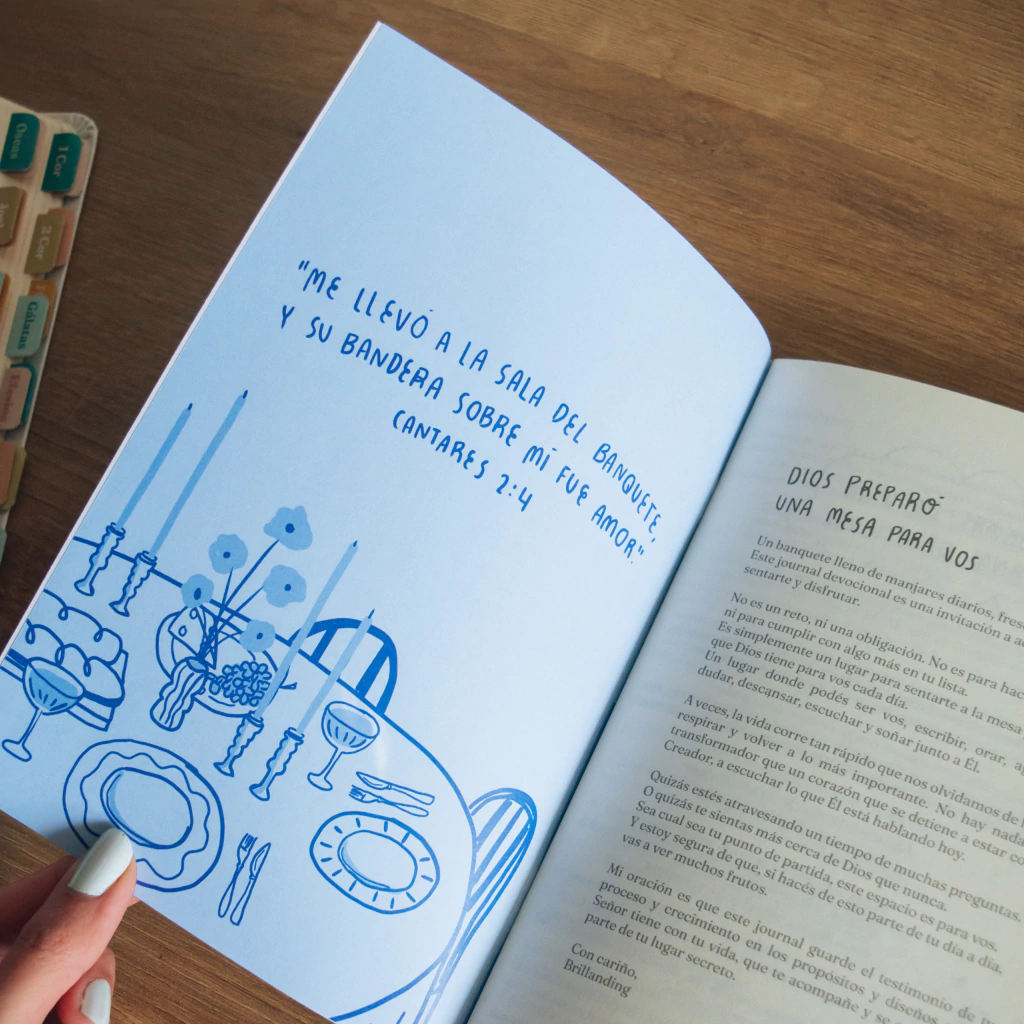 Oseas
1 Cor
Joel
2 Cor
Gálatas
"ME LLEVÓ A LA SALA DEL BANQUETE,
Y SU BANDERA SOBRE MÍ FUE AMOR".
CANTARES 2:4
DIOS PREPARÓ
UNA MESA PARA VOS
Un banquete lleno de manjares diarios,
Este journal devocional es una invitación a
sentarte y disfrutar.
No es un reto, ni una obligación. No es para
ni para cumplir con algo más en tu lista.
Es simplemente un lugar para sentarte a la mesa
que Dios tiene para vos cada día.
Un lugar donde podés ser vos, escribir, orar,
dudar, descansar, escuchar y soñar junto a Él.
A veces, la vida corre tan rápido que nos olvidamos de
respirar y volver a lo más importante. No hay nada
transformador que un corazón que se detiene a estar
Creador, a escuchar lo que Él está hablando hoy.
Quizás estés atravesando un tiempo de muchas preguntas.
O quizás te sientas más cerca de Dios que nunca.
Sea cual sea tu punto de partida, este espacio es para vos.
Y estoy segura de que, si hacés de esto parte de tu día a día,
vas a ver muchos frutos.
Mi oración es que este journal guarde el testimonio de
proceso y crecimiento en los propósitos y diseños
Señor tiene con tu vida, que te acompañe y
parte de tu lugar secreto.
Con cariño,
Brillanding